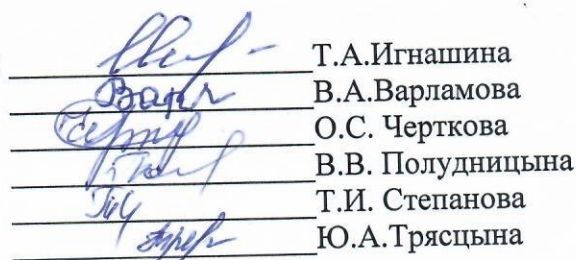 Т.А.Игнашина
В.А.Варламова
О.С. Черткова
В.В. Полудницына
Т.И. Степанова
Ю.А.Трясцына